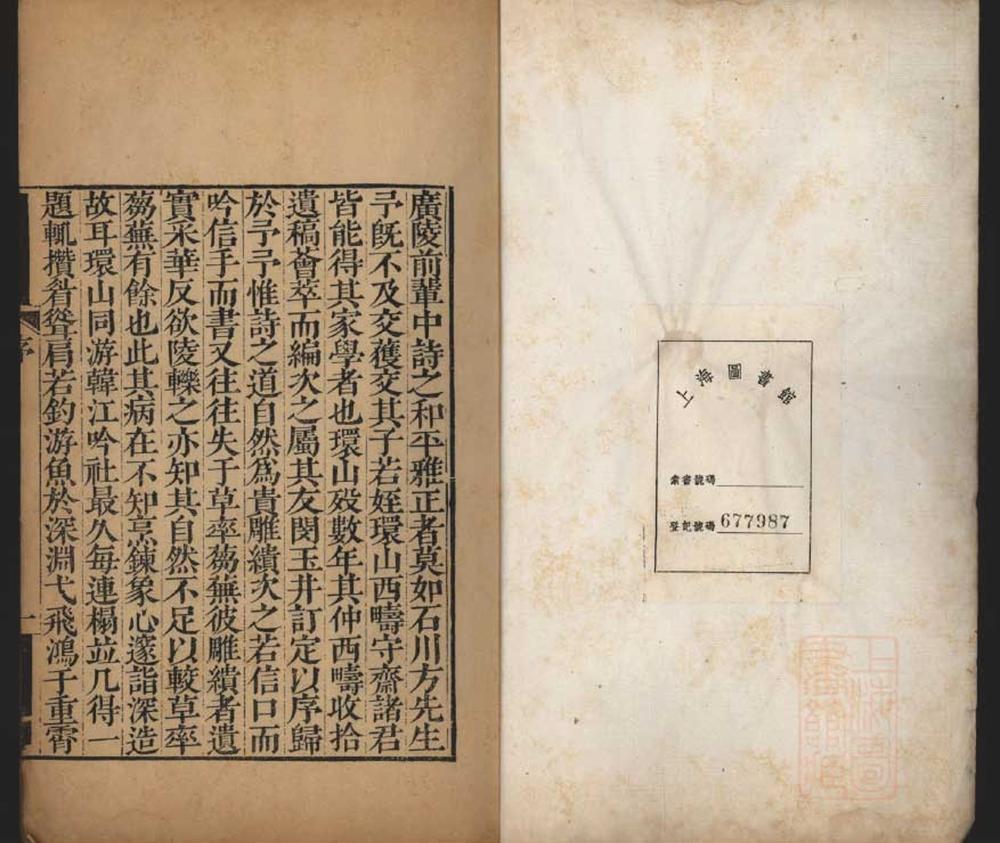 上海圖書館
索書號碼
登記號碼 677987
上海圖書館藏
廣陵前輩中詩之和平雅正者莫如石川方先生
予旣不及交獲交其子若姪環山西疇守齋諸君
皆能得其家學者也環山歿數年其仲西疇收拾
遺稿薈萃而編次之屬其友閔玉井訂定以序歸
於予予惟詩之道自然爲貴雕繢次之若信口而
吟信手而書又往往失于草率蒭蕪彼雕繢者遺
實采華反欲陵轢之亦知其自然不足以較草率
蒭蕪有餘也此其病在不知烹鍊象心邃詣深造
故耳環山同游韓江吟社最久每連榻並几得一
題輒攢眉聳肩若釣游魚於深淵弋飛鴻于重霄
序
一